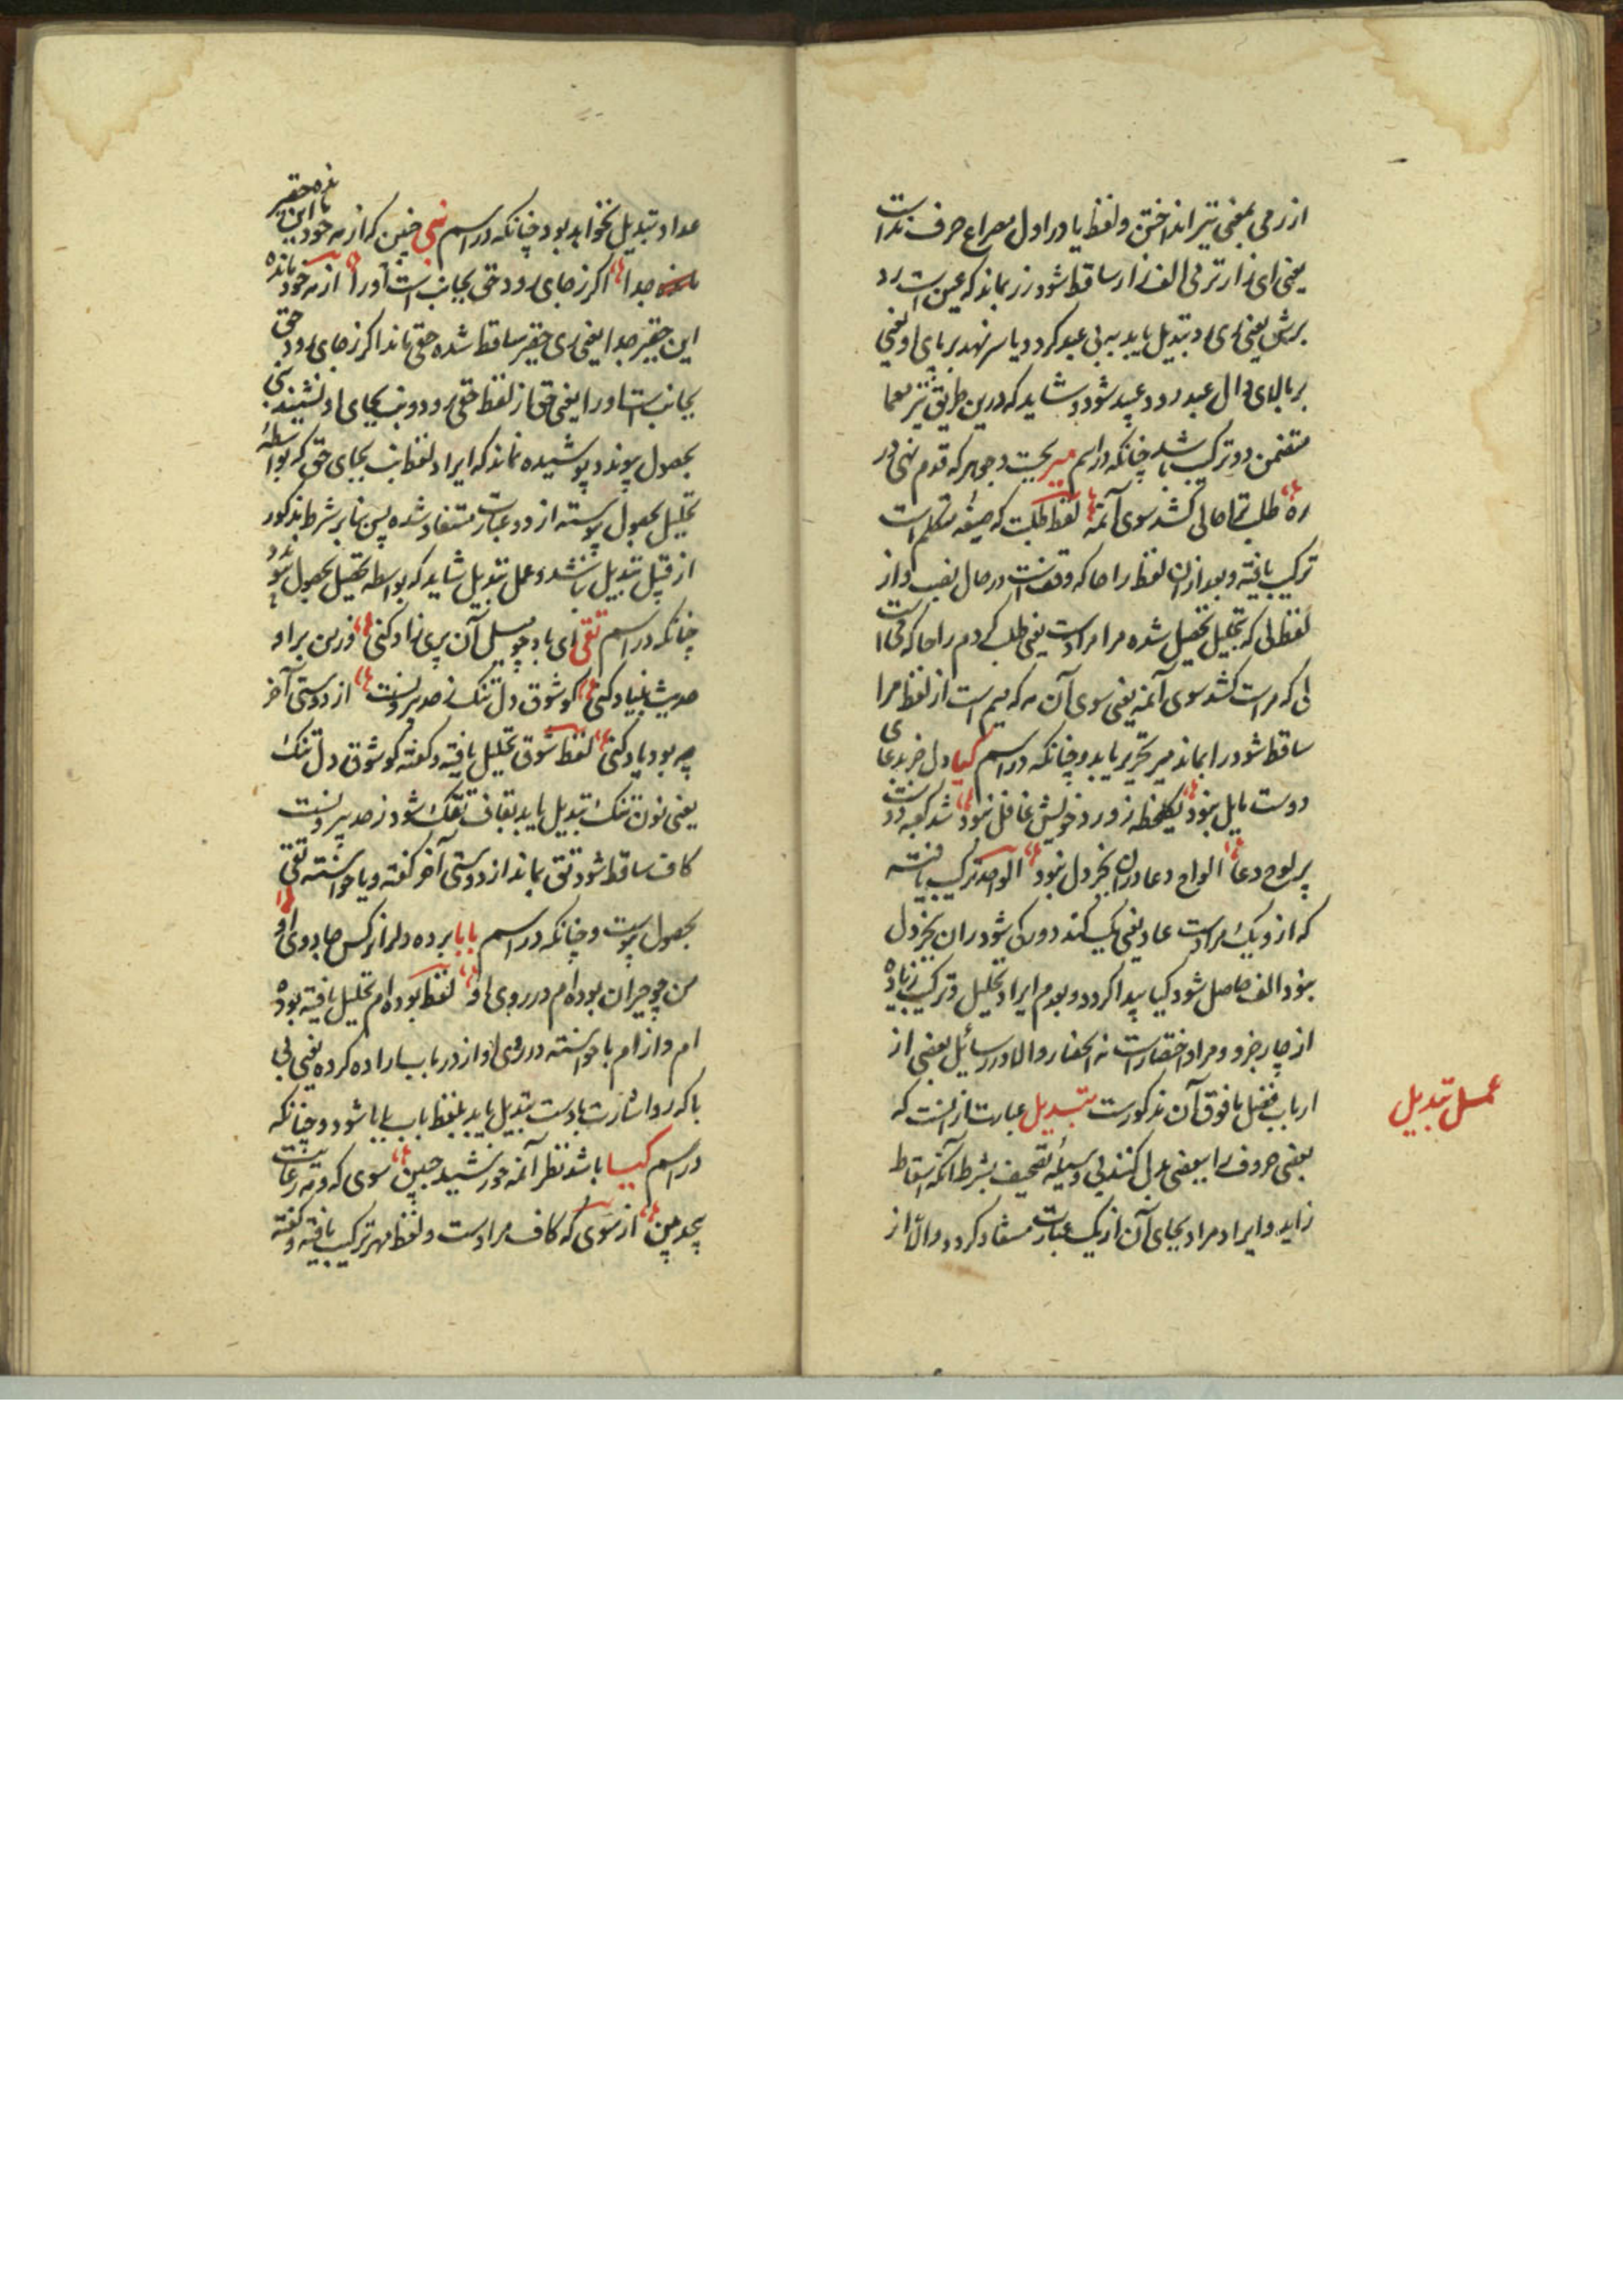 از رمی بمعنی تیر انداختن و لفظ یا در اول مصراع حرف نداست
یعنی ای زار تر بی الف زار ساقط شود زر بماند که عین است رد
برش یعنی ری او تبدیل یابد به بی عبو کردد یا سر نهد بر پای او یعنی
بر بالای دال عبد رود عبید شود و شاید که درین طریق نیز معما
متضمن دو ترکیب باشد چنانکه در اسم میر بحیت وجهیر که قدم نهی در
ره طلب تا حالی کشد سوی آئمه لفظ طلبت که صیغه متکلم است
ترکیب یافته و بعد ازان لفظ را حا که وقفست در حال نصب و از
لفظ لی که تحلیل تحصیل شده مرا مرادست یعنی طلب کردم را حا که فی است
لی که مراست کشد سوی آنمه یعنی سوی آن مه که میم است از لفظ مرا
ساقط شود را بماند میر تحریر یابد و چنانکه در اسم کیا دل خرید عای
دوست مایل نبود یکلحظه ز ورد خویش غافل نبود شد کعبه دوست
پر لوح دعا الواح دعا دران بجز دل نبود الواحد ترکیب یافته
که ازو یک مرادست عاد یعنی یک کند دورک شود ران بجز دل
نبود الف حاصل شود کیا پیدا کردد و بعدم ایراد تحلیل و ترکیب زیاده
از چار جزو و مراد اختصارست نه انحصار و الا در رسائل بعضی از
ارباب فضل ما فوق آن مذکورست تبدیل عبارت از انست که
عمل تبدیل
بعضی حروف را ببعضی بدل کنند بی وسیله تصحیف بشرط آنکه اسقاط
زاید و ایراد مراد بجای آن از یک عبارت مستفاد کردد و الا از
عداد تبدیل نخواهد بود چنانکه در اسم نبی چنین که از مه خود این بنده حقیر
مانده جدا اکر ز جای رود حق بجانبست اورا از مه خود مانده
این حقیر جدا یعنی ری حقیر ساقط شده حقی ماند اکر ز جای رود حق
بجانبست اورا یعنی حق از لفظ حقی رود و نب بجای او نشیند نبی
بحصول پیوندد پوشیده نماند که ایراد لفظ نب بجای حق که بواسطه
تحلیل بحصول پیوسته از دو عبارت مستفاد شده پس بنا بر شرط مذکور
از قبیل تبدیل نباشد و عمل تبدیل شاید که بواسطه تحلیل بحصول پیوندد
چنانکه در اسم تقی ای باد چو میل آن پری زاد کنی زین بر او
حدیث بنیاد کنی کو شوق دل تنک ز حد بیرونست از دوستی آخر
چه بود یاد کنی لفظ شوق تحلیل یافته و کفته کو شوق دل تنک
یعنی نون تنک تبدیل یابد بقاف تقک شود ز حد بیرونست
کاف ساقط شود تق بماند از دوستی آخر کفته و یا خواسته تقی
بحصول پیوست و چنانکه در اسم بابا برده دلم از نرکس جادوی او
من چو حیران بوده ام در روی او لفظ بوده ام تحلیل یافته بوده
ام و از ام با خواسته در روی او از در باب اراده کرده یعنی بی
با که رو اشارت بادست تبدیل یابد بلفظ باب بابا شود و چنانکه
در اسم کیا باشد نظر آنمه خورشید جبین سوی که و مه رعایت
بچد مبین از سوی که کاف مرادست و لفظ مهر ترکیب یافته و کفته